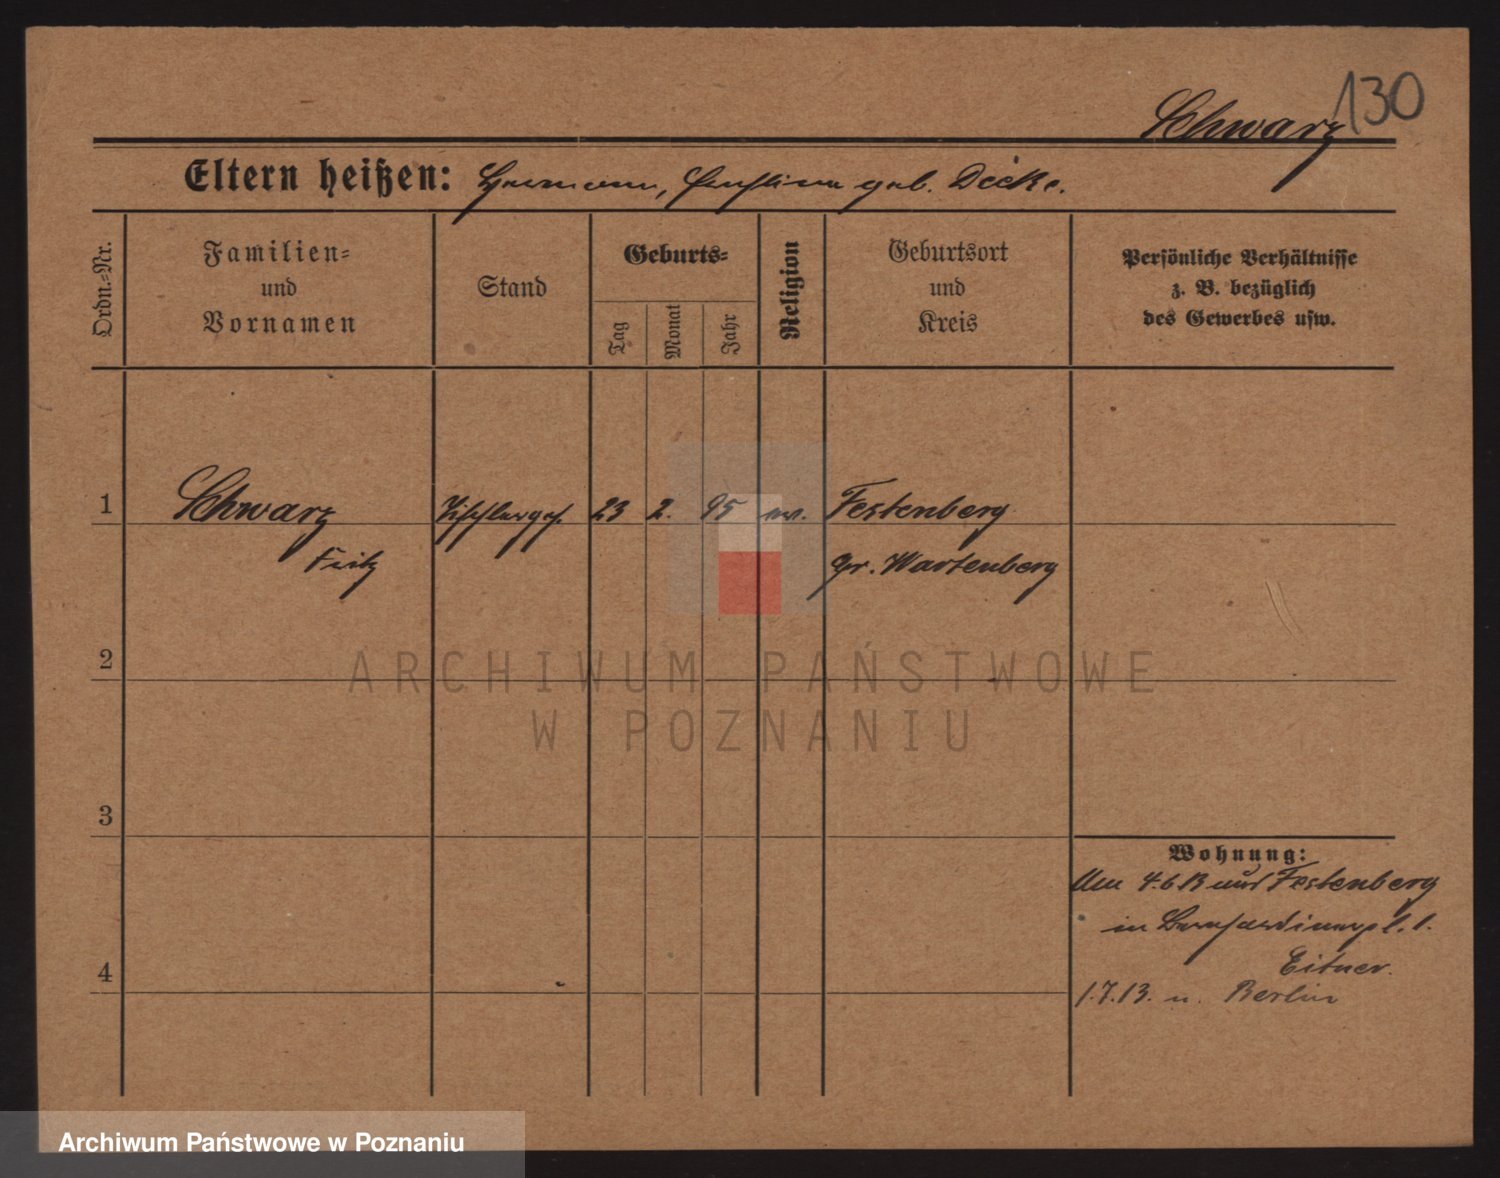 130
Schwarz
Eltern heißen: Hermann, Paulline geb. Decke.
Ordn.=Nr.
Familien=
und
Vornamen
Stand
Geburts=
Tag
Monat
Jahr
Religion
Geburtsort
und
Kreis
Persönliche Verhältnisse
z. B. bezüglich
des Gewerbes usw.
1 Schwarz Tischlerges. 23 2. 95 ev. Festenberg
Fritz gr. Wartenberg
2
ARCHIWUM PAŃSTWOWE
W POZNANIU
3
Wohnung:
4.6.13 Festenberg
in Bernhardinerpl. 1.
Eitner.
4
1.7.13. n. Berlin
Archiwum Państwowe w Poznaniu